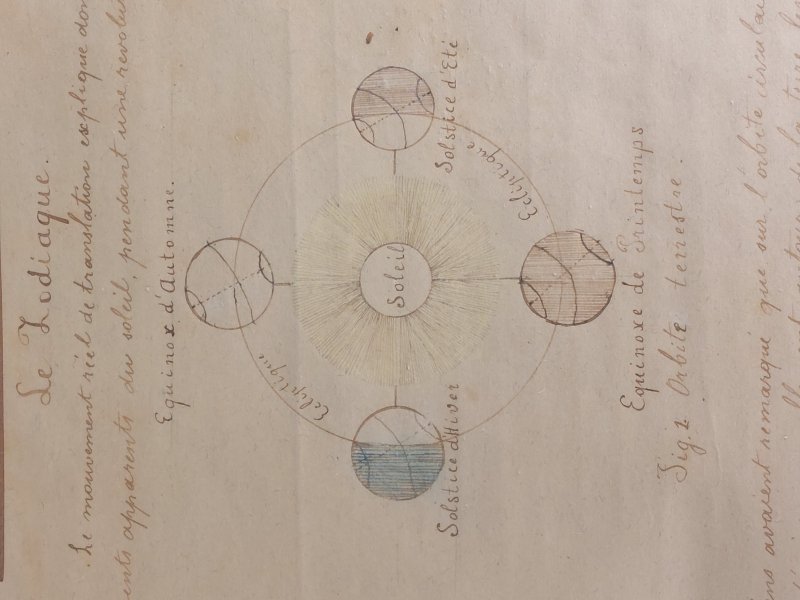 Le Zodiaque.
Le mouvement réel de translation explique don
ents apparents du soleil, pendant une revolu
Equinox d'Automne.
Ecliptique
Soleil
Ecliptique
Solstice d'Hiver
Solstice d'Eté
Equinoxe de Printemps
Fig. 2 Orbite terrestre.
ns avaient remarqué que sur l'orbite circulai
tour de la terre les